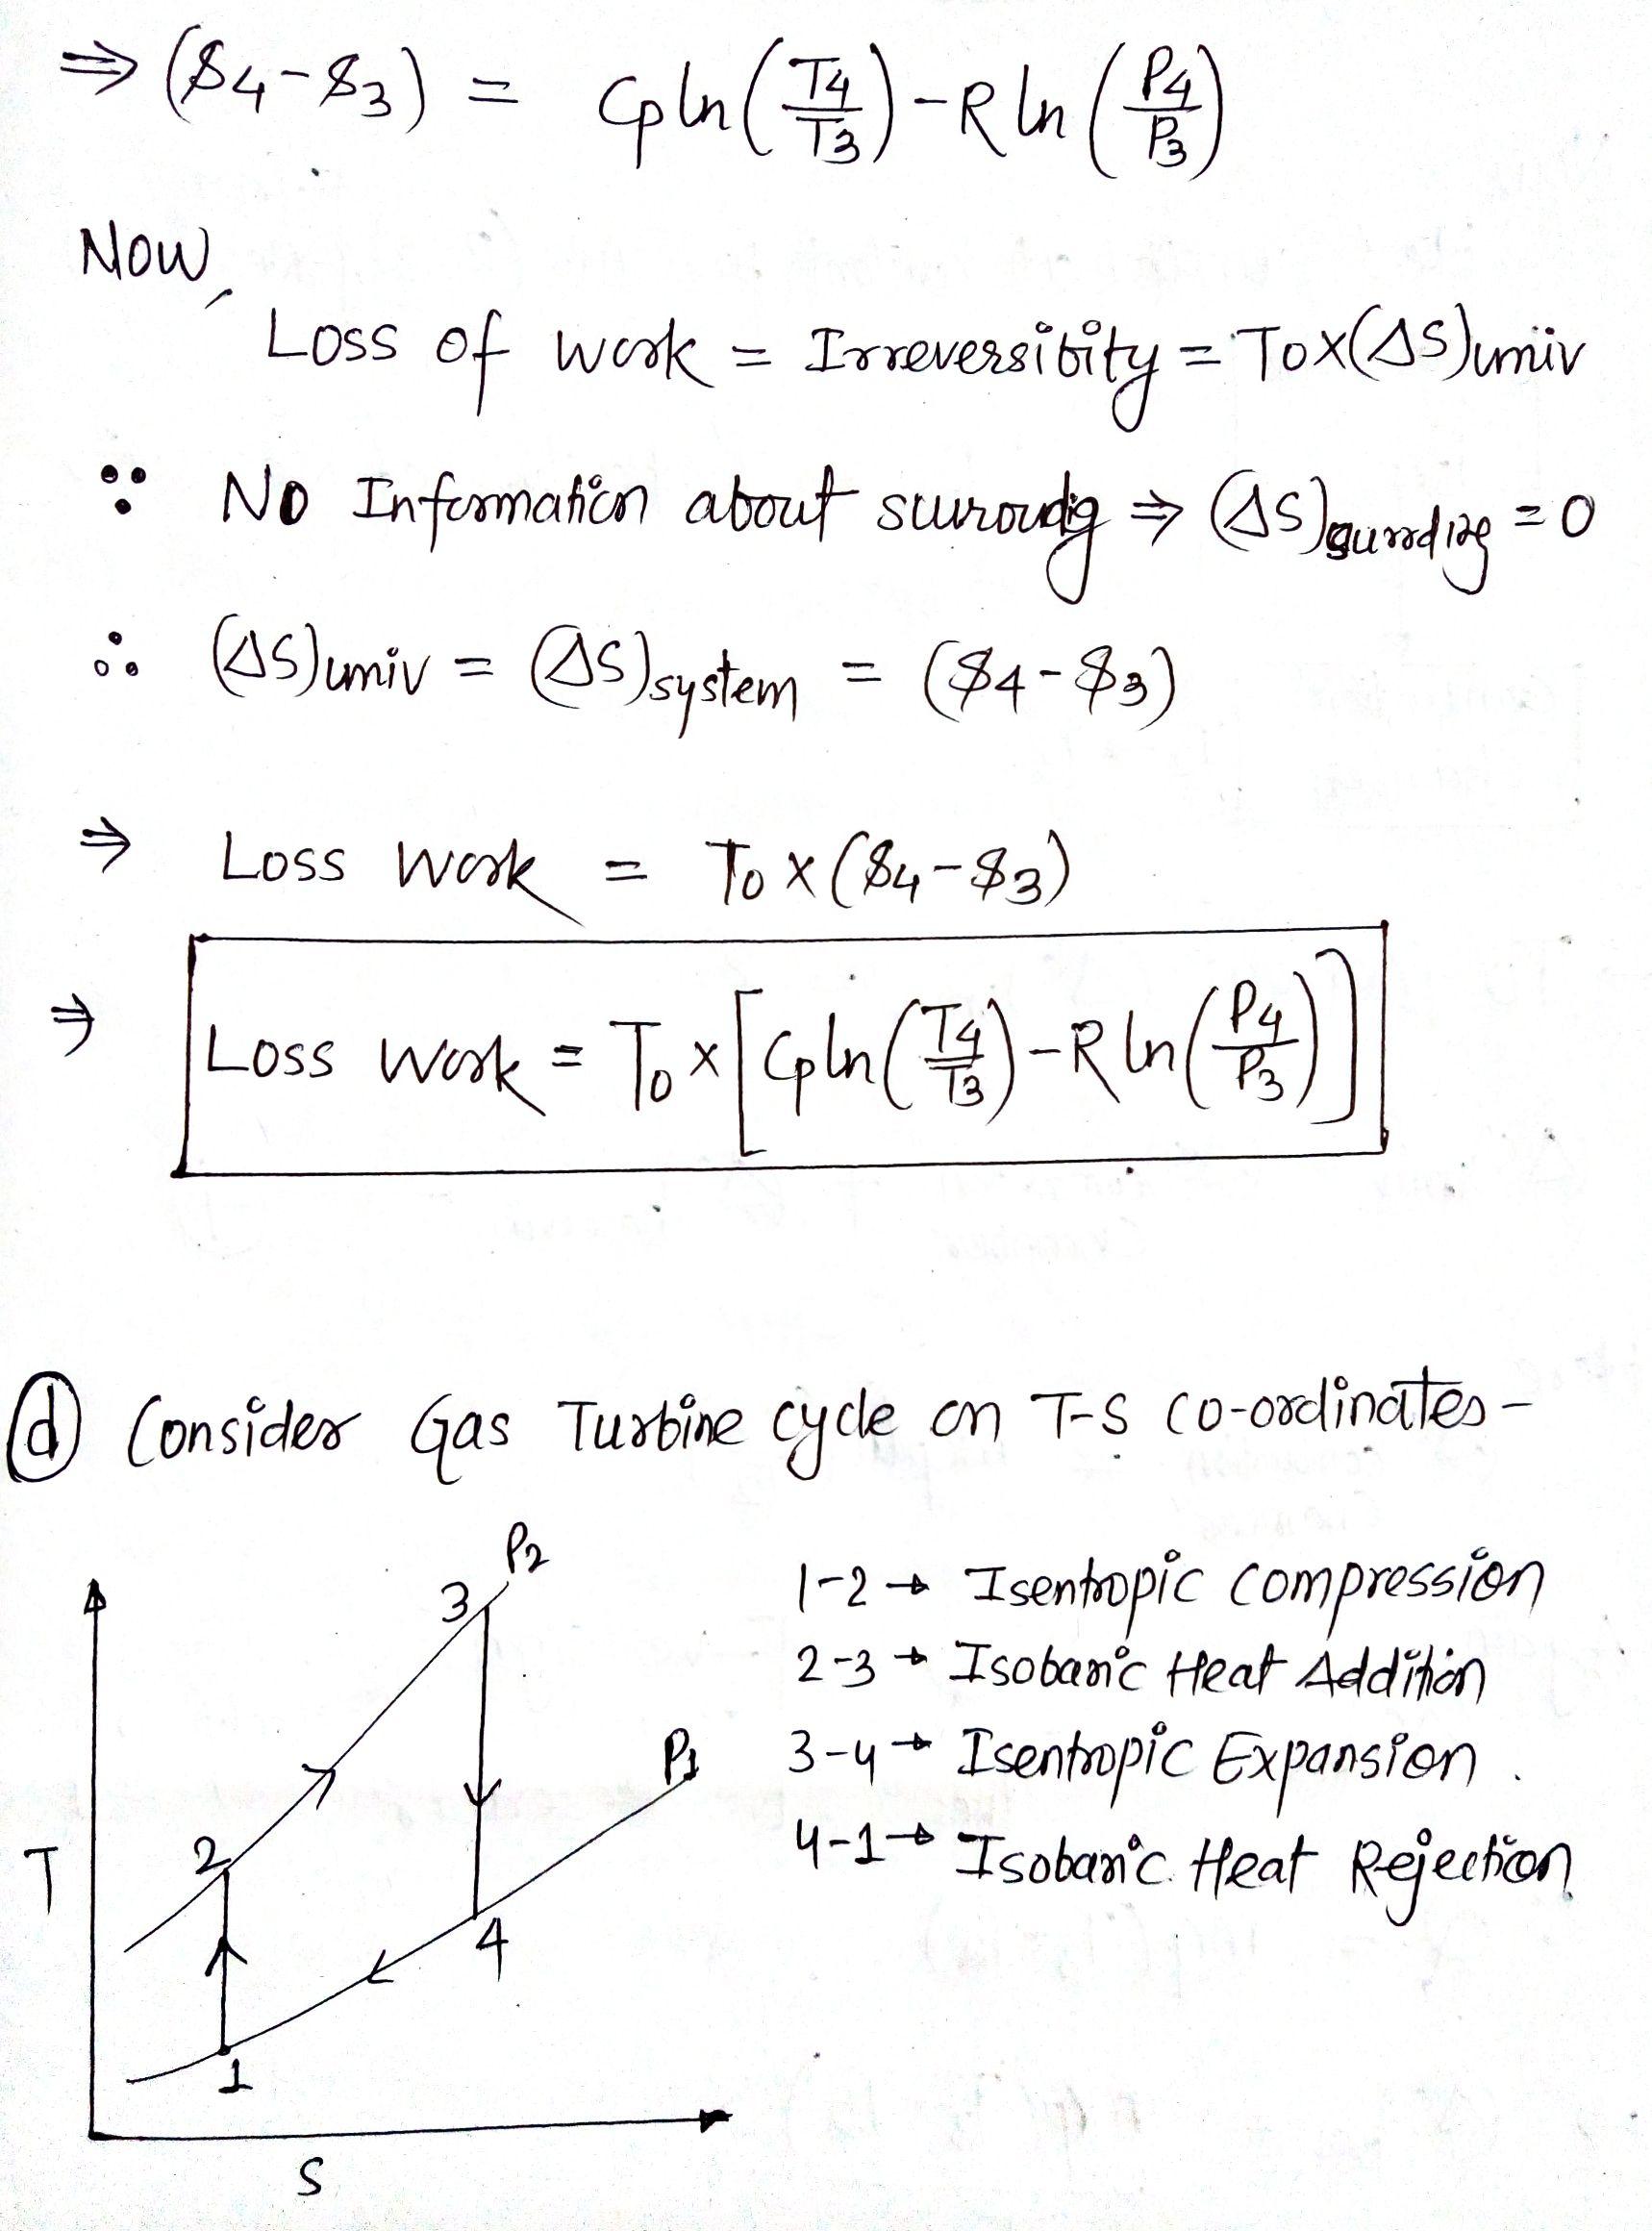 ⇒ (S4-S3) = Cp ln(T4/T3) - R ln(P4/P3)
Now,
Loss of work = Irreversibity = To×(ΔS)univ
∵ No Information about suuroudig ⇒ (ΔS)surrdig = 0
∴ (ΔS)univ = (ΔS)system = (S4-S3)
⇒ Loss Work = To × (S4-S3)
⇒ Loss Work = To × [Cp ln(T4/T3) - R ln(P4/P3)]
(d) Consider Gas Turbine cycle on T-S co-ordinates-
P2
3
1-2 → Isentropic compression
2-3 → Isobaric Heat Addition
P1
3-4 → Isentropic Expansion.
4-1 → Isobaric Heat Rejection
T
2
4
1
S